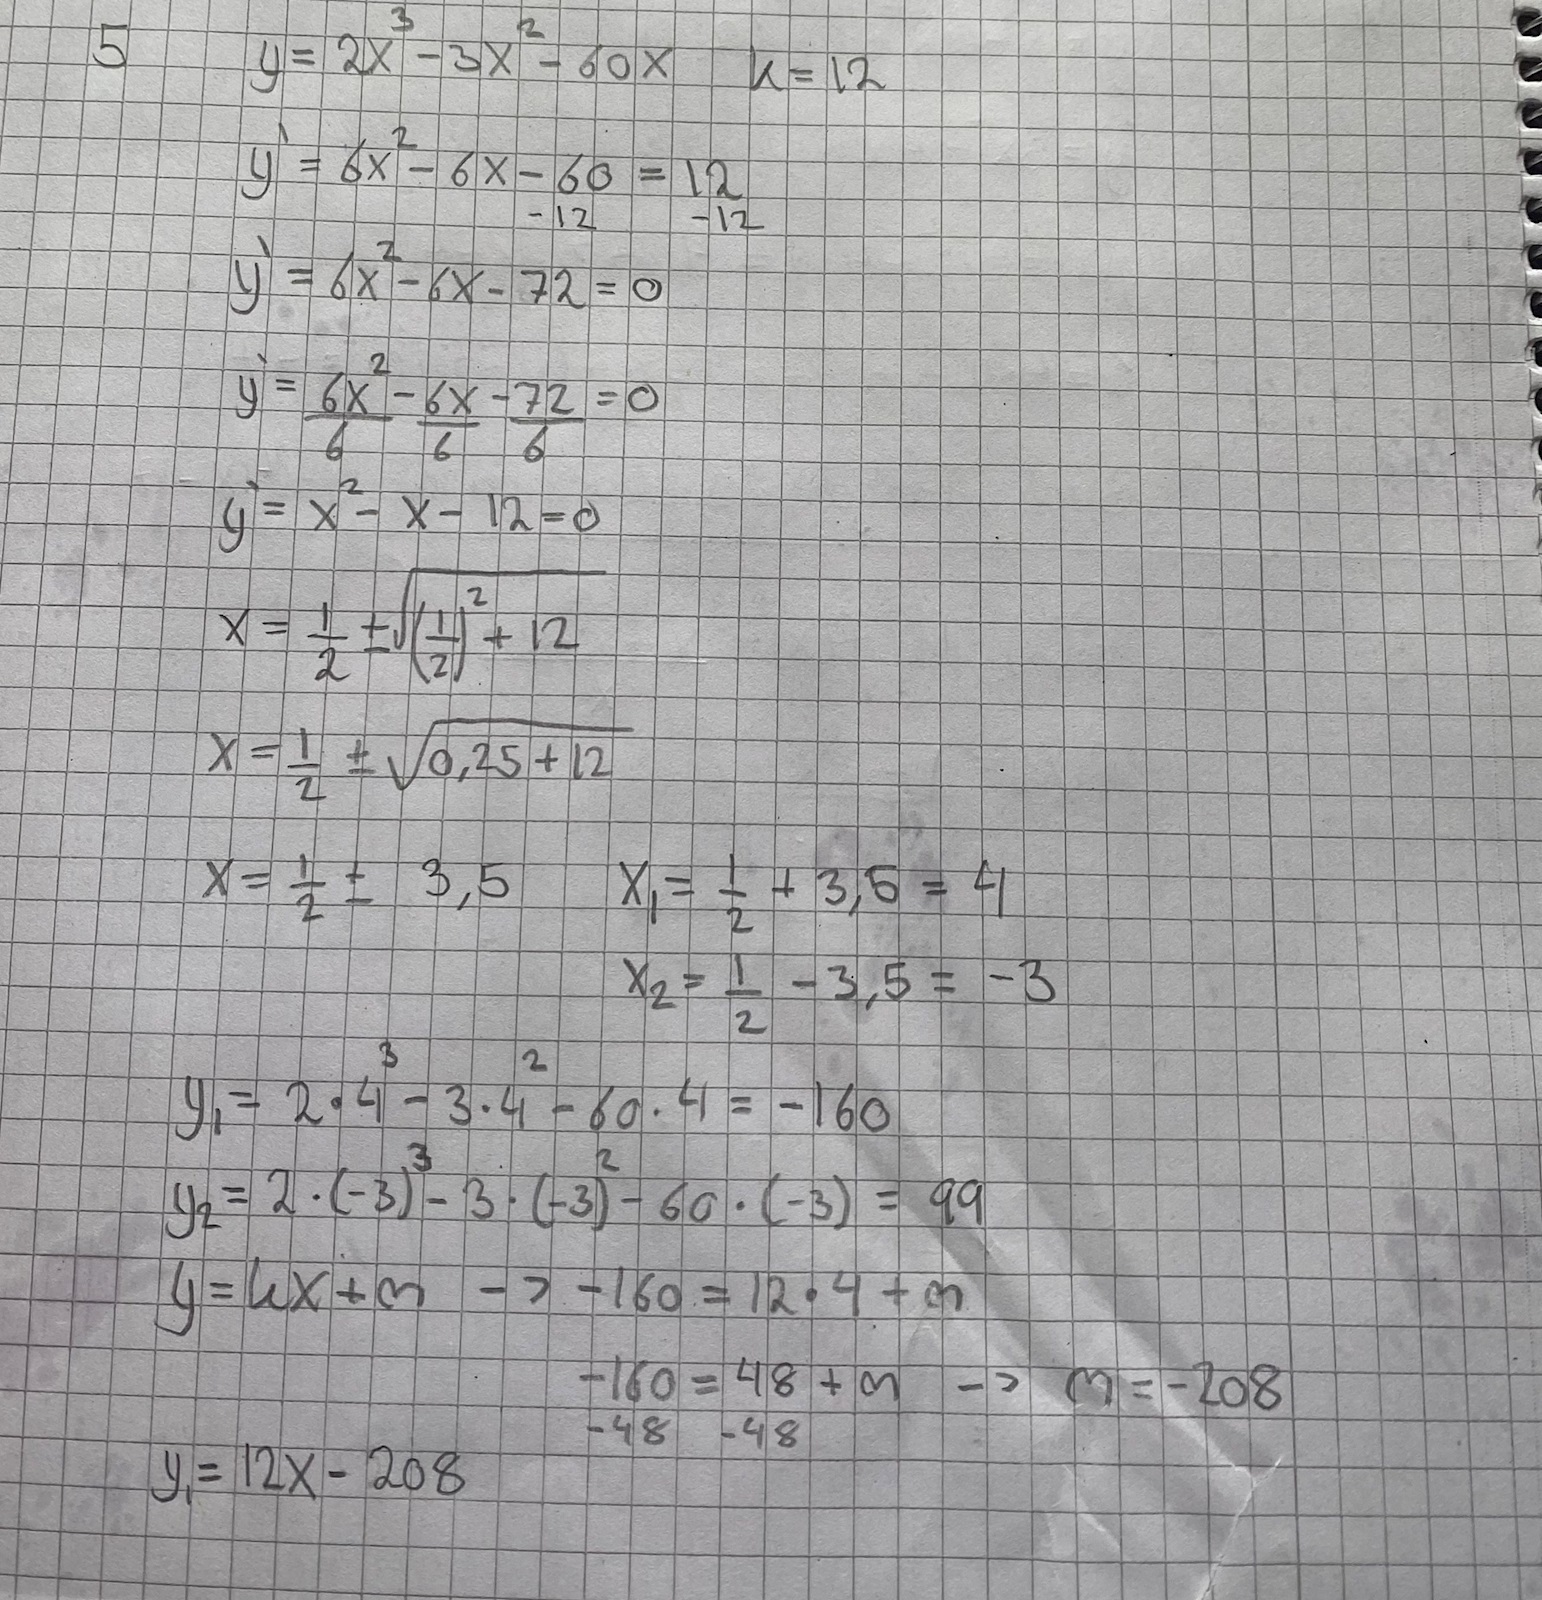 5 y = 2x³ - 3x² - 60x k = 12
y' = 6x² - 6x - 60 = 12
-12 -12
y' = 6x² - 6x - 72 = 0
y' = 6x²/6 - 6x/6 - 72/6 = 0
y' = x² - x - 12 = 0
x = 1/2 ± √((1/2)² + 12)
x = 1/2 ± √(0,25 + 12)
x = 1/2 ± 3,5 x₁ = 1/2 + 3,5 = 4
x₂ = 1/2 - 3,5 = -3
y₁ = 2·4³ - 3·4² - 60·4 = -160
y₂ = 2·(-3)³ - 3·(-3)² - 60·(-3) = 99
y = kx + m -> -160 = 12·4 + m
-160 = 48 + m -> m = -208
-48 -48
y₁ = 12x - 208